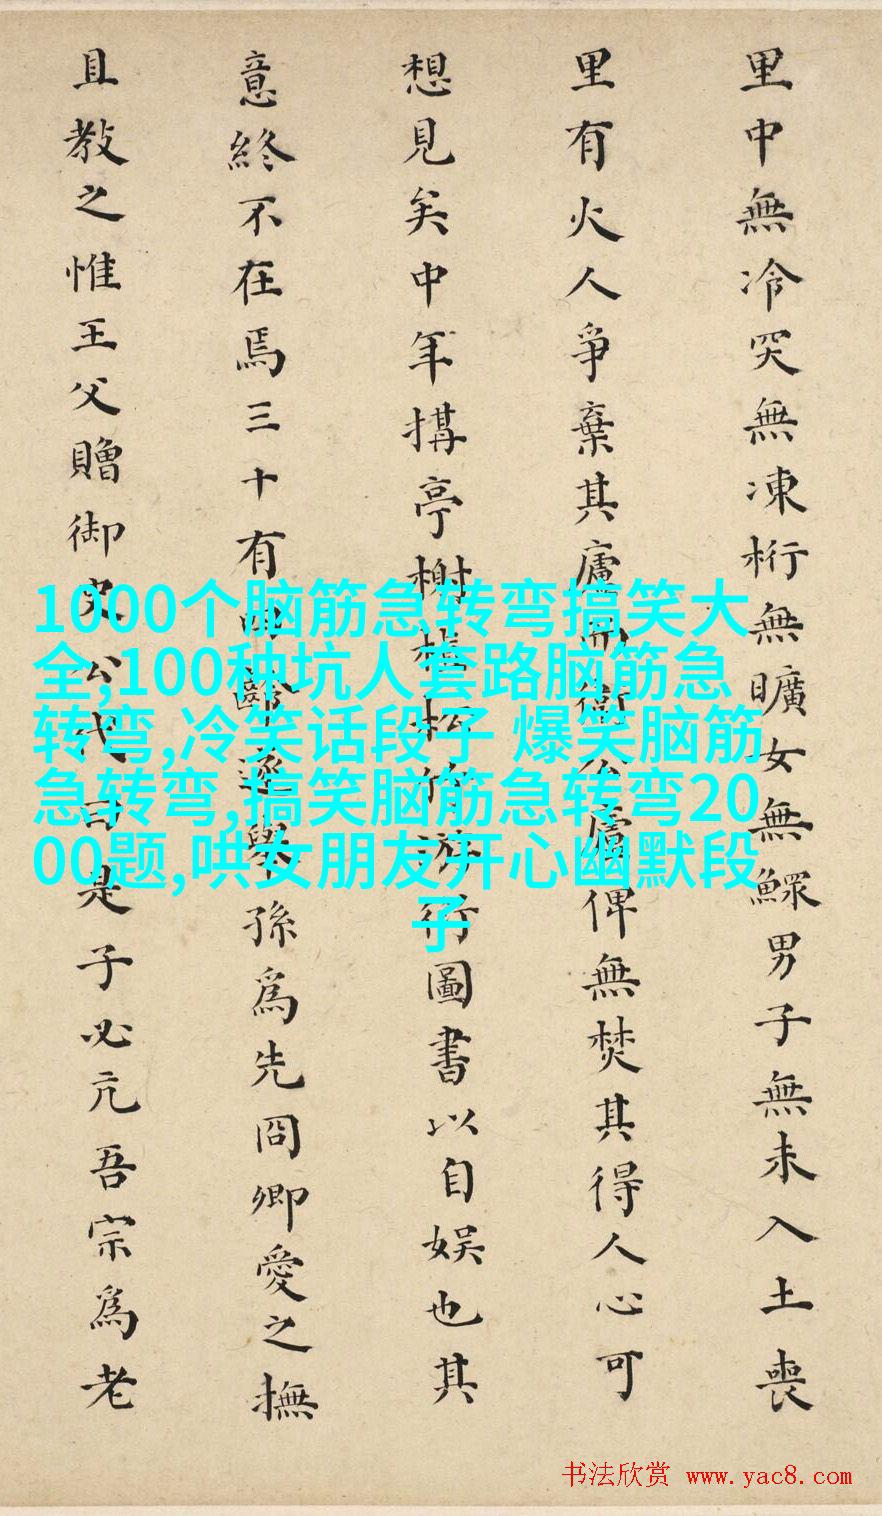 里中無冷突無凍桁無曠女無鰥男子無未入土喪
里有火人爭棄其廬而衛公廬俾無焚其得人心可
想見矣中年搆亭榭植松竹游衍圖書以自娱也其
意終不在焉三十有齡逐舉孫爲先冏卿愛之撫
且教之惟王父贈御史公代曰是子必亢吾宗爲老
1000个脑筋急转弯搞笑大
全,100种坑人套路脑筋急
转弯,冷笑话段子 爆笑脑筋
急转弯,搞笑脑筋急转弯20
00题,哄女朋友开心幽默段
子
书法欣赏 www.yac8.com